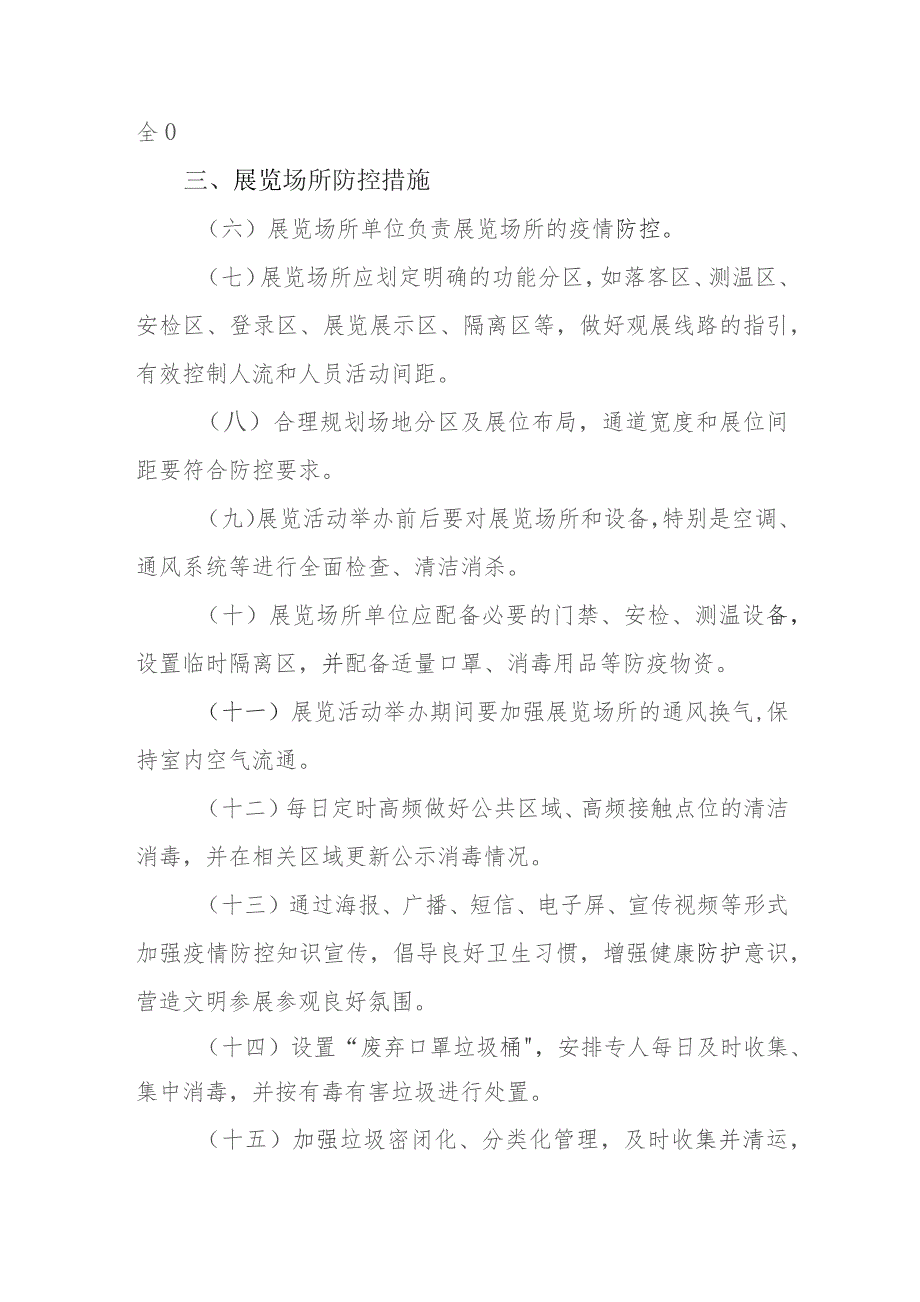 全0
三、展览场所防控措施
（六）展览场所单位负责展览场所的疫情防控。
（七）展览场所应划定明确的功能分区,如落客区、测温区、
安检区、登录区、展览展示区、隔离区等，做好观展线路的指引，
有效控制人流和人员活动间距。
（八）合理规划场地分区及展位布局，通道宽度和展位间
距要符合防控要求。
（九）展览活动举办前后要对展览场所和设备,特别是空调、
通风系统等进行全面检查、清洁消杀。
（十）展览场所单位应配备必要的门禁、安检、测温设备，
设置临时隔离区，并配备适量口罩、消毒用品等防疫物资。
（十一）展览活动举办期间要加强展览场所的通风换气,保
持室内空气流通。
（十二）每日定时高频做好公共区域、高频接触点位的清洁
消毒，并在相关区域更新公示消毒情况。
（十三）通过海报、广播、短信、电子屏、宣传视频等形式
加强疫情防控知识宣传，倡导良好卫生习惯，增强健康防护意识，
营造文明参展参观良好氛围。
（十四）设置“废弃口罩垃圾桶"，安排专人每日及时收集、
集中消毒，并按有毒有害垃圾进行处置。
（十五）加强垃圾密闭化、分类化管理，及时收集并清运，